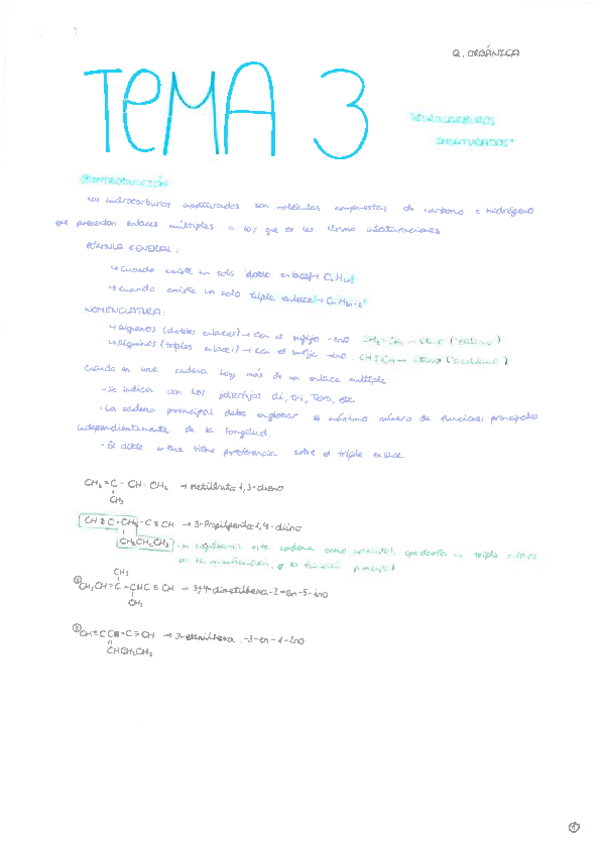 Q. ORGÁNICA
TEMA 3
"HIDROCARBUROS
INSATURADOS"
INTRODUCCIÓN
Los hidrocarburos insaturados son moléculas compuestas de carbono e hidrógeno
que presentan enlaces múltiples a los que se les llama insaturaciones
FÓRMULA GENERAL:
↳ cuando existe un solo doble enlace →
↳ cuando existe un solo triple enlace →
NOMENCLATURA:
↳ Alquenos (dobles enlaces) → con el sufijo -eno
↳ Alquinos (triples enlaces) → con el sufijo -ino. CH≡CH → etino ("acetileno")
Cuando en una cadena hay más de un enlace múltiple
- Se indica con los prefijos di, tri, tetra, etc
- La cadena principal debe englobar el máximo número de funciones principales
independientemente de la longitud.
- El doble enlace tiene preferencia sobre el triple enlace
CH₂=C-CH=CH₂ → metilbuta-1,3-dieno
CH₃
CH≡C-CH-C≡CH → 3-Propilpenta-1,4-diino
CH₂CH₂CH₃ esta cadena como principal, quedaría un triple enlace
en la ramificación, y es función principal
CH₃
① → dimetilhexa-2-en-5-ino
CH₃
② → 3-etenilhexa-3-en-1-ino
CHCH₂CH₃
1